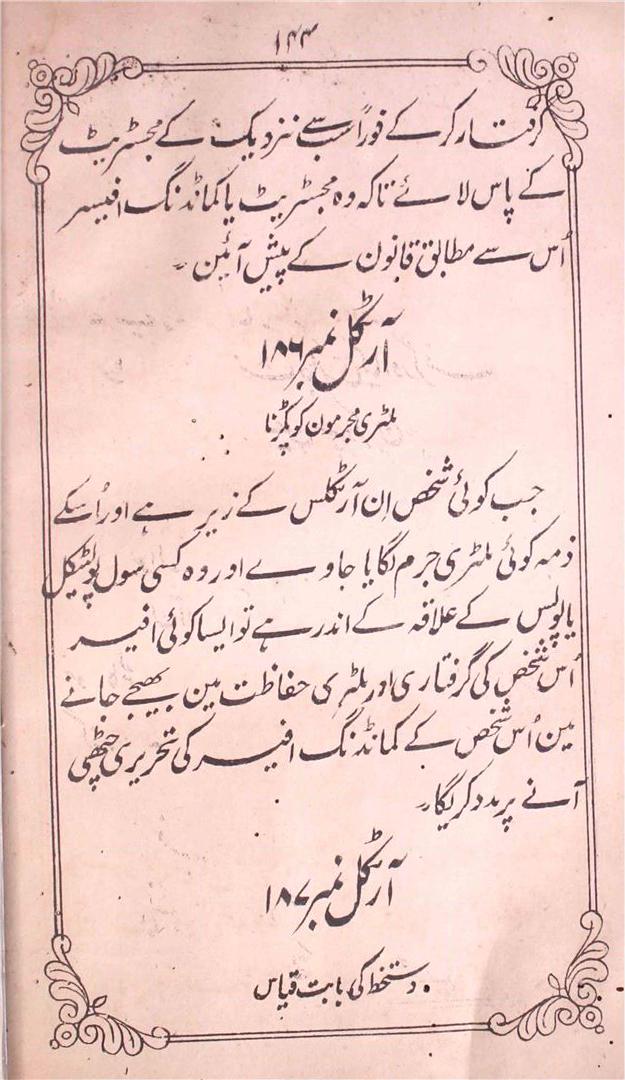 ۱۴۳
گرفتار کر کے فوراً سب سے نزدیک کے مجسٹریٹ
کے پاس لائے تاکہ وہ مجسٹریٹ یا کمانڈنگ افیسر
اُس سے مطابق قانون کے پیش آئین ۔
آرٹیکل نمبر ۱۸۶
ملٹری مجرمون کو پکڑنا
جب کوئی شخص اِن آرٹکلس کے زیر ہے اور اُسکے
ذمہ کوئی ملٹری جرم لگایا جاوے اور وہ کسی سول پولٹیکل
یا پولس کے علاقہ کے اندر ہے تو ایسا کوئی افیسر
اُس شخص کی گرفتاری اور ملٹری حفاظت مین بھیجے جانے
مین اُس شخص کے کمانڈنگ افیسر کی تحریری چٹھی
آنے پر مدد کریگا۔
آرٹیکل نمبر ۱۸۷
دستخط کی بابت قیاس